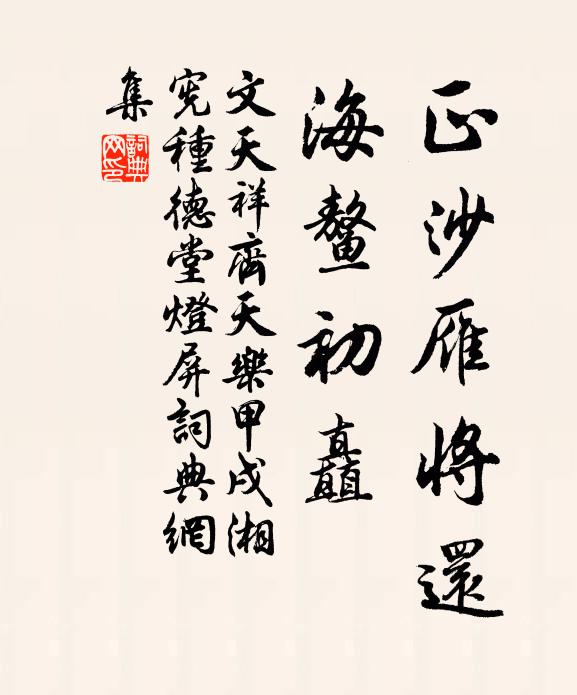 正沙雁將還
海鼇初矗
文天祥齊天樂甲戌湘
宪種德堂燈屏詞典網
集
詞典
网印